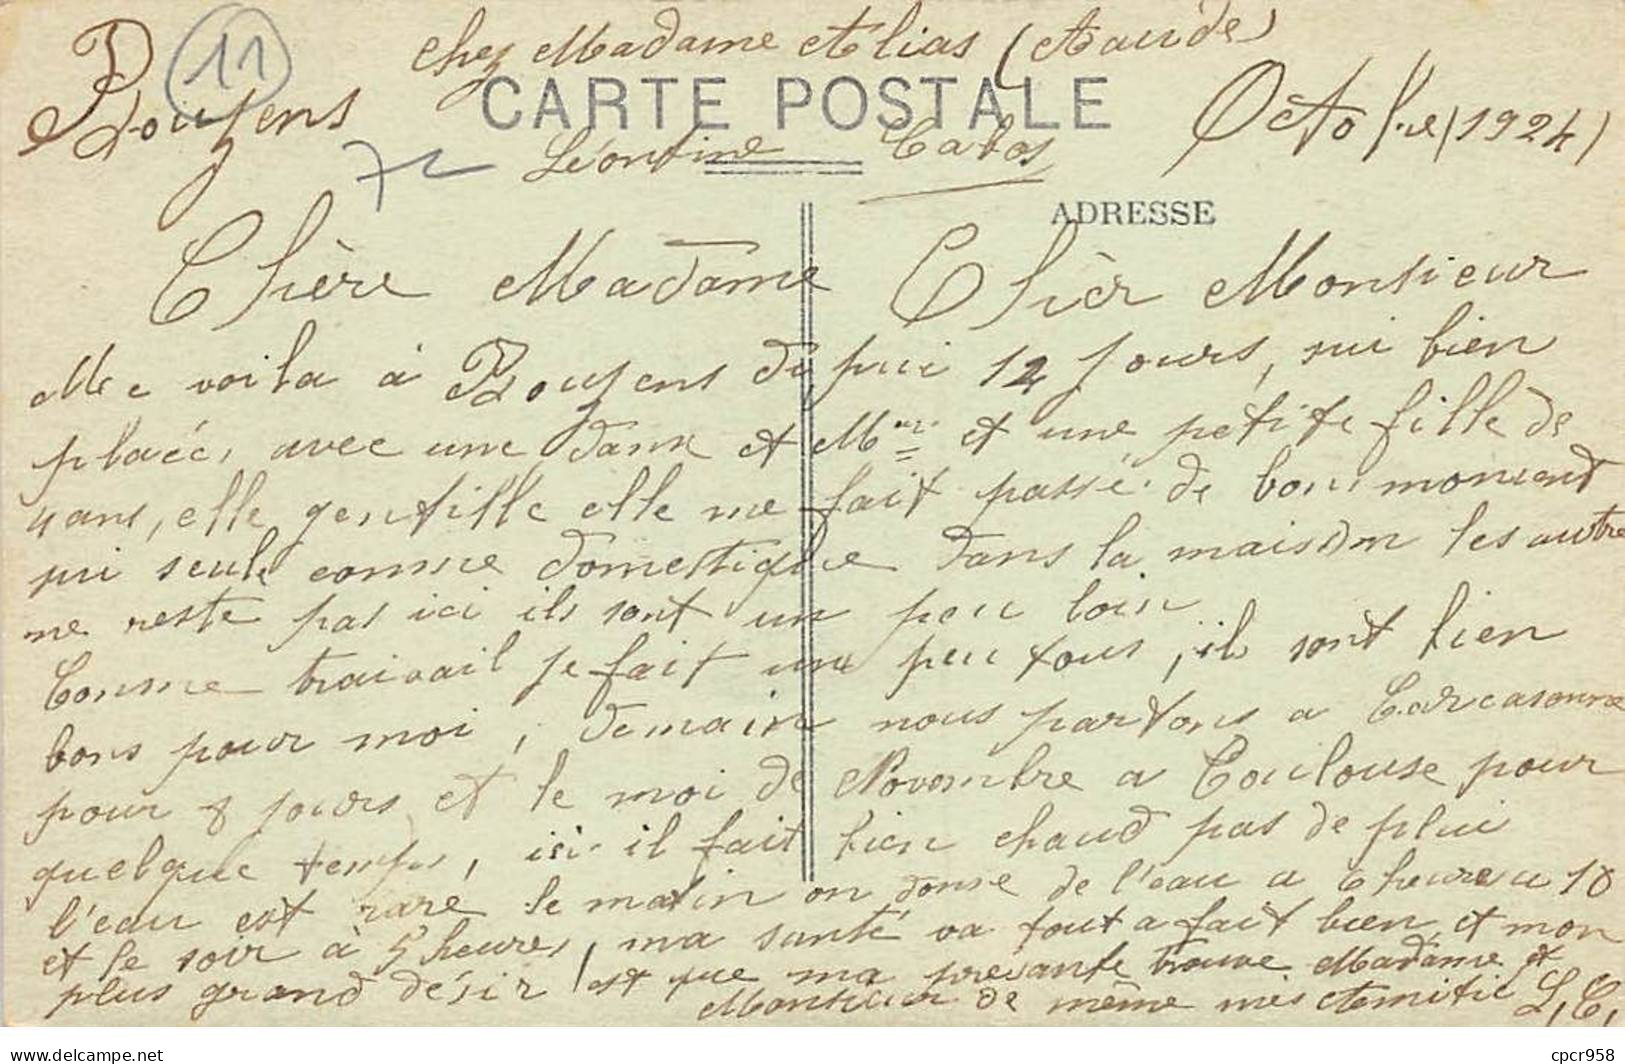 chez Madame Atlias (Aaude)
11
CARTE POSTALE
Bouzens
Octobre (1924)
Léontine Cabos
ADRESSE
Chère Madame Chèr Monsieur
Me voila à Bouzens depui 12 jours, sui bien
plaée, avec une dame et Mur et une petite fille de
4 ans, elle gentille elle me fait passé de bons moment
sui seule comme domestique dans la maison les autre
ne reste pas ici ils sont un peu loin
Comme traivail je fait un peu tous, il sont bien
bons pour moi, demain nous partons a Carcasonne
pour 8 jours et le moi de Novembre a Toulouse pour
quelque temps, ici il fait bien chaud pas de plui
l'eau est rare le matin on donne de l'eau a 6 heures a 10
et le soir à 5 heures, ma santé va tout a fait bien et mon
plus grand désir est que ma présante trouve Madame et
Monsieur de même mes Amitié L, C,
cpcr958